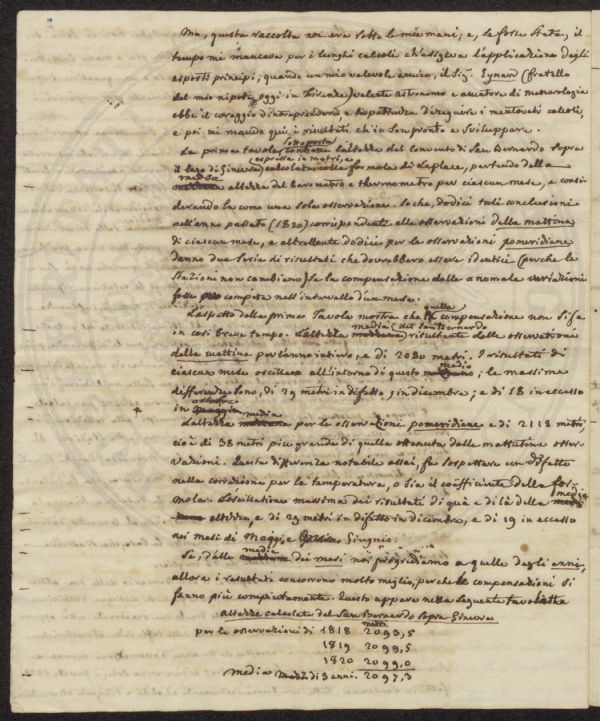 Ma, questa raccolta non era sotto le mie mani; e, se fosse stata, il
tempo mi mancava per i lunghi calcoli ch'esigeva l'applicazione degli
esposti principj, quando un mio valevole amico, il Sig. Eynard (fratello
del mio nipote, oggi in Firenze) valente astronomo e amatore di meteorologia
ebbe il coraggio d'intraprendere e la pazienza d'eseguire i mentovati calcoli,
e poi mi mandò qui i risultati ch'io son pronto a sviluppare.
sottoposta
La prima tavola contiene l'altezza del convento di San Bernardo sopra
(espressa in metri, e
il lago di Ginevra) calcolata colla formola di Laplace, partendo della
media
altezza del barometro e thermometro per ciascun mese, e consi
derandola come una sola osservazione. So che, dodici tali conclusioni
nell'anno passato (1820) corrispondenti alle osservazioni della mattina
di ciascun mese, e altrettante dodici per le osservazioni pomeridiane
danno due serie di risultati che dovrebbero essere identici (perche le
stazioni non cambiano) se la compensazione delle anomale variazioni
fosse compita nell'intervallo d'un mese.
quella
L'aspetto della prima Tavola mostra che compensazione non si fa
media (del San Bernardo
in così breve tempo. L'altezza risultante delle osservazioni
della mattina per l'anno intiero, e di 2080 metri. I risultati di
medio
ciascun mese oscillano all'intorno di questo ; le massime
differenze sono, di 29 metri in difetto, in dicembre; e di 18 in eccesso
in
media
L'altezza per le osservazione pomeridiane e di 2118 metri,
cioè di 38 metri più grande di quella ottenuta dalle mattutine osser
vazioni. Questa differenza notabile assai, fa sospettare un difetto
nella correzione per la temperatura, o sia il coëfficiente della for
mola. L'oscillazione massima dei risultati di quà e di là della media
altezza, e di 29 metri in difetto in dicembre, e di 19 in eccesso
nei mesi di Maggi e Giugnio.
media
Se, dalle dei mesi noi progrediamo a quelle degli anni,
allora i resultati concorrono molto meglio, perche le compensazioni si
fanno più compiutamente. Questo appare nella seguente tavoletta
Altezze calcolate del San Bernardo sopra Ginevra
metri
per le osservazioni di 1818 2093,5
1819 2099,5
1820 2099,0
Media di 3 anni. 2097,3